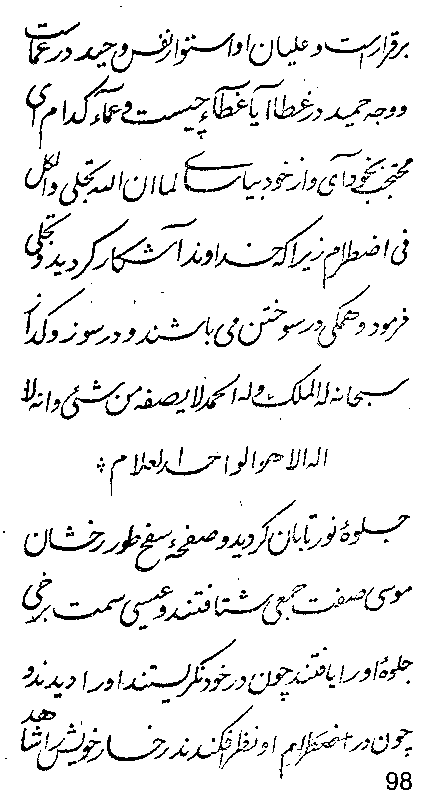 برقرار است و علیان او استوار نفس وحید در عماست
و وجه حمید در غطا آیا غطاء چیست و عماء کدام ای
محتجب بخود آی و از خود بیاسای لما ان الله تجلی والکل
فی اضطرام زیرا که خداوند آشکار گردید و تجلی
فرمود و همگی در سوختن می باشند و در سوز و گداز
سبحانه له الملک وله الحمد لایصفه من شئی وانه لا
اله الا هو الواحد العلام *
جلوهٔ نور تابان گردید و صفحهٔ سفح طور رخشان
موسی صفت جمعی شتافتند و عیسی سمت برخی
جلوهٔ او را یافتند چون در خود نگریستند او را دیدند و
چون در اضطرام او نظر افکندند رخسار خویش را شاهد
98